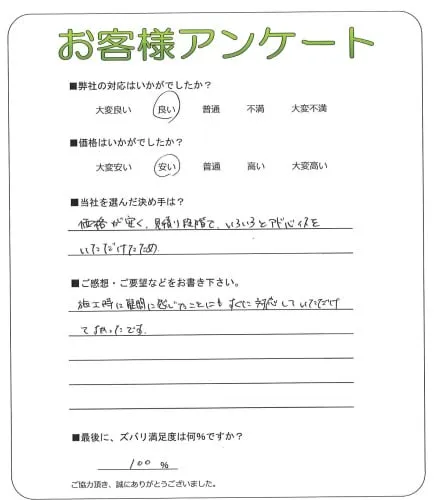 お客様アンケート
■弊社の対応はいかがでしたか？
大変良い 良い 普通 不満 大変不満
■価格はいかがでしたか？
大変安い 安い 普通 高い 大変高い
■当社を選んだ決め手は？
価格が安く、見積り段階で、いろいろとアドバイスを
いただけたため
■ご感想・ご要望などをお書き下さい。
施工時に疑問に感じたことにもすぐに対応していただけ
て よかったです.
■最後に、ズバリ満足度は何%ですか？
100 %
ご協力頂き、誠にありがとうございました。